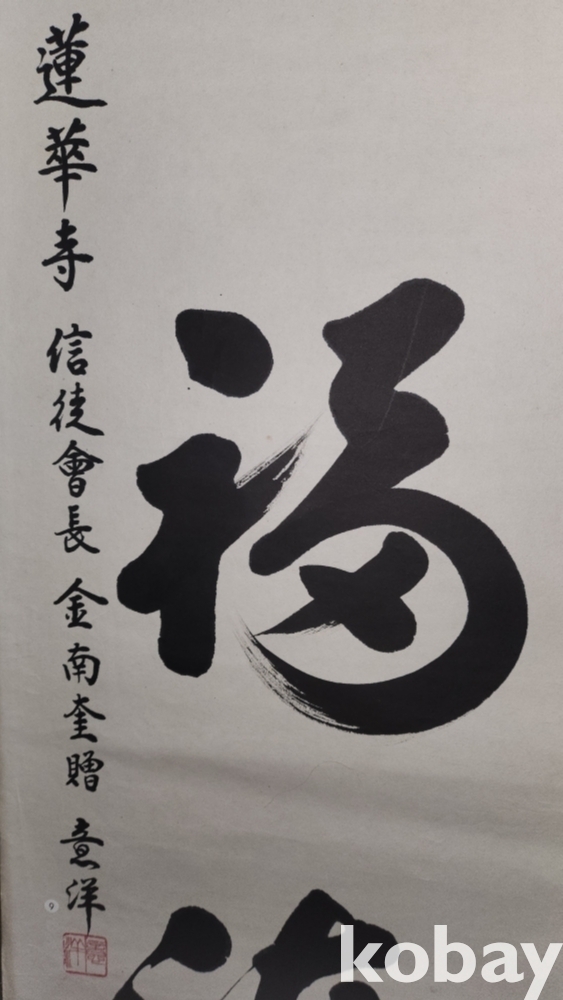 福
蓮華寺 信徒會長 金南奎贈 意洋
kobay